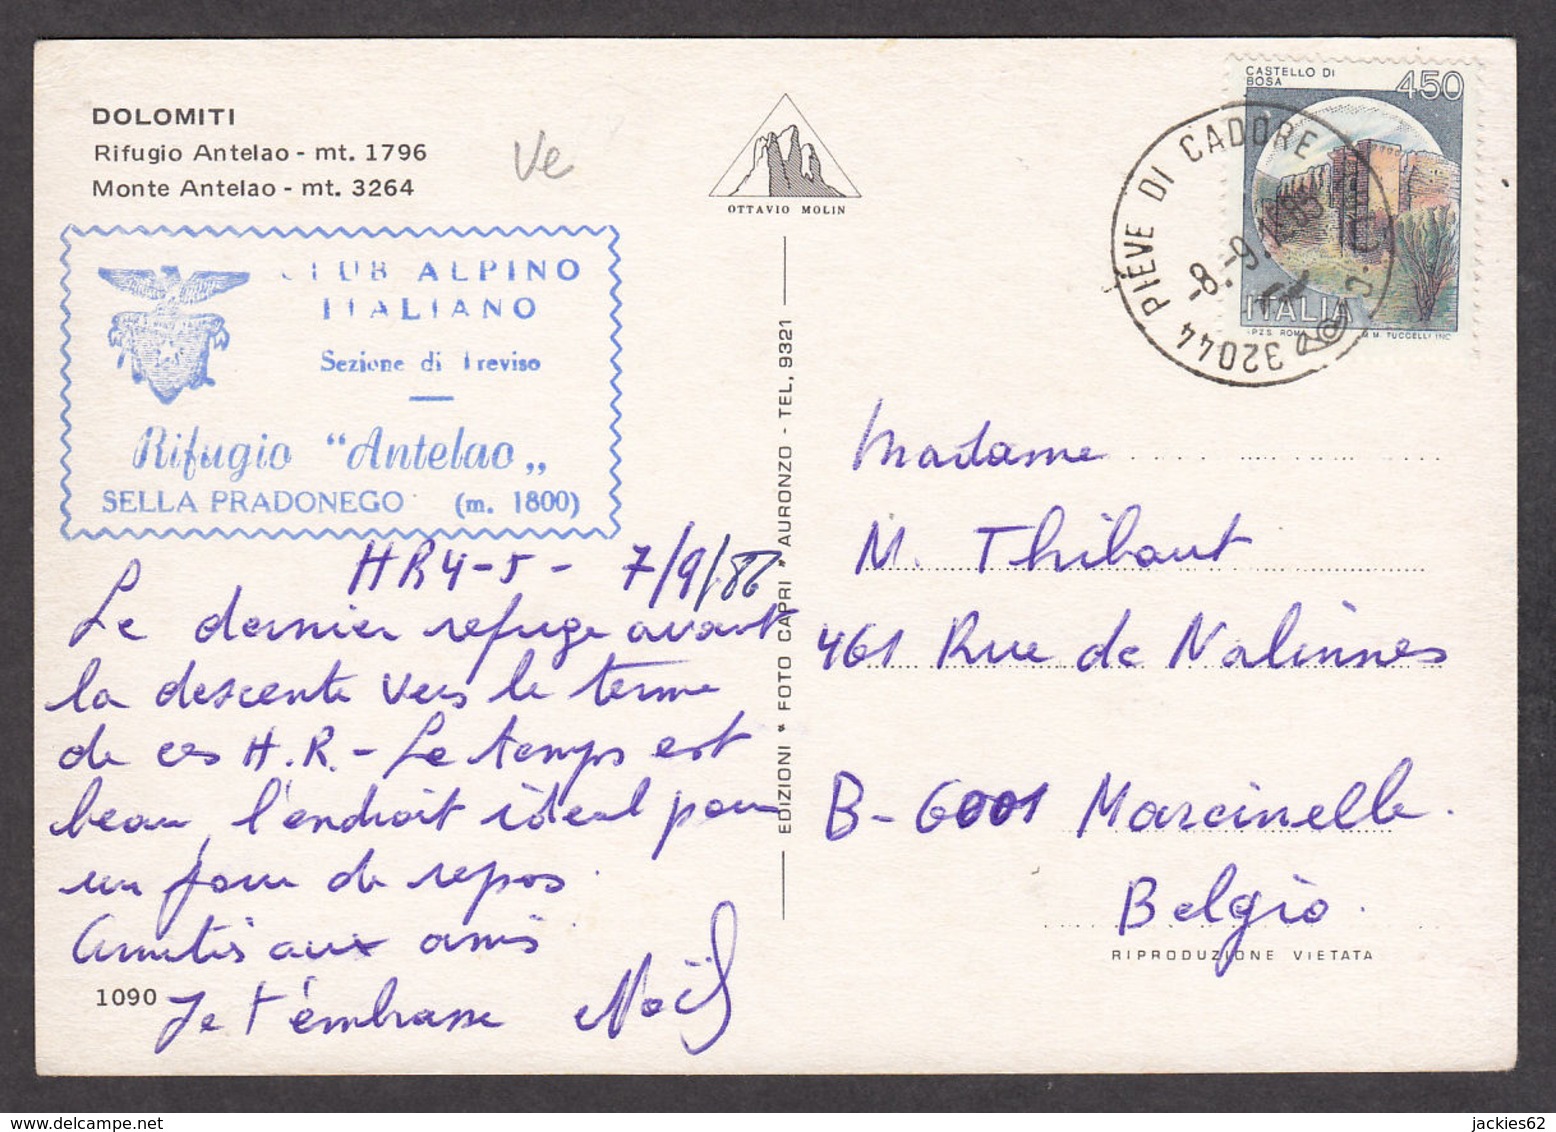 DOLOMITI
Rifugio Antelao - mt. 1796
Monte Antelao - mt. 3264
Ve
CLUB ALPINO
ITALIANO
Sezione di Treviso
Rifugio "Antelao„
SELLA PRADONEGO (m. 1800)
HR4-5 - 7/9/86
Le dernier refuge avant
la descente vers le terme
de ces H.R. - Le temps est
beau, l'endroit idéal pour
un jour de repos.
Amitiés aux amis.
Je t'embrasse Noël
1090
OTTAVIO MOLIN
EDIZIONI * FOTO CAPRI * AURONZO - TEL. 9321
CASTELLO DI
BOSA
450
ITALIA
I.P.Z.S. ROMA
M. TUCCELLI INC.
32044 PIEVE DI CADORE
-8.-9.
Madame
M. Thibaut
461 Rue de Nalinnes
B-6001 Marcinelle.
Belgio.
RIPRODUZIONE VIETATA
jackies62